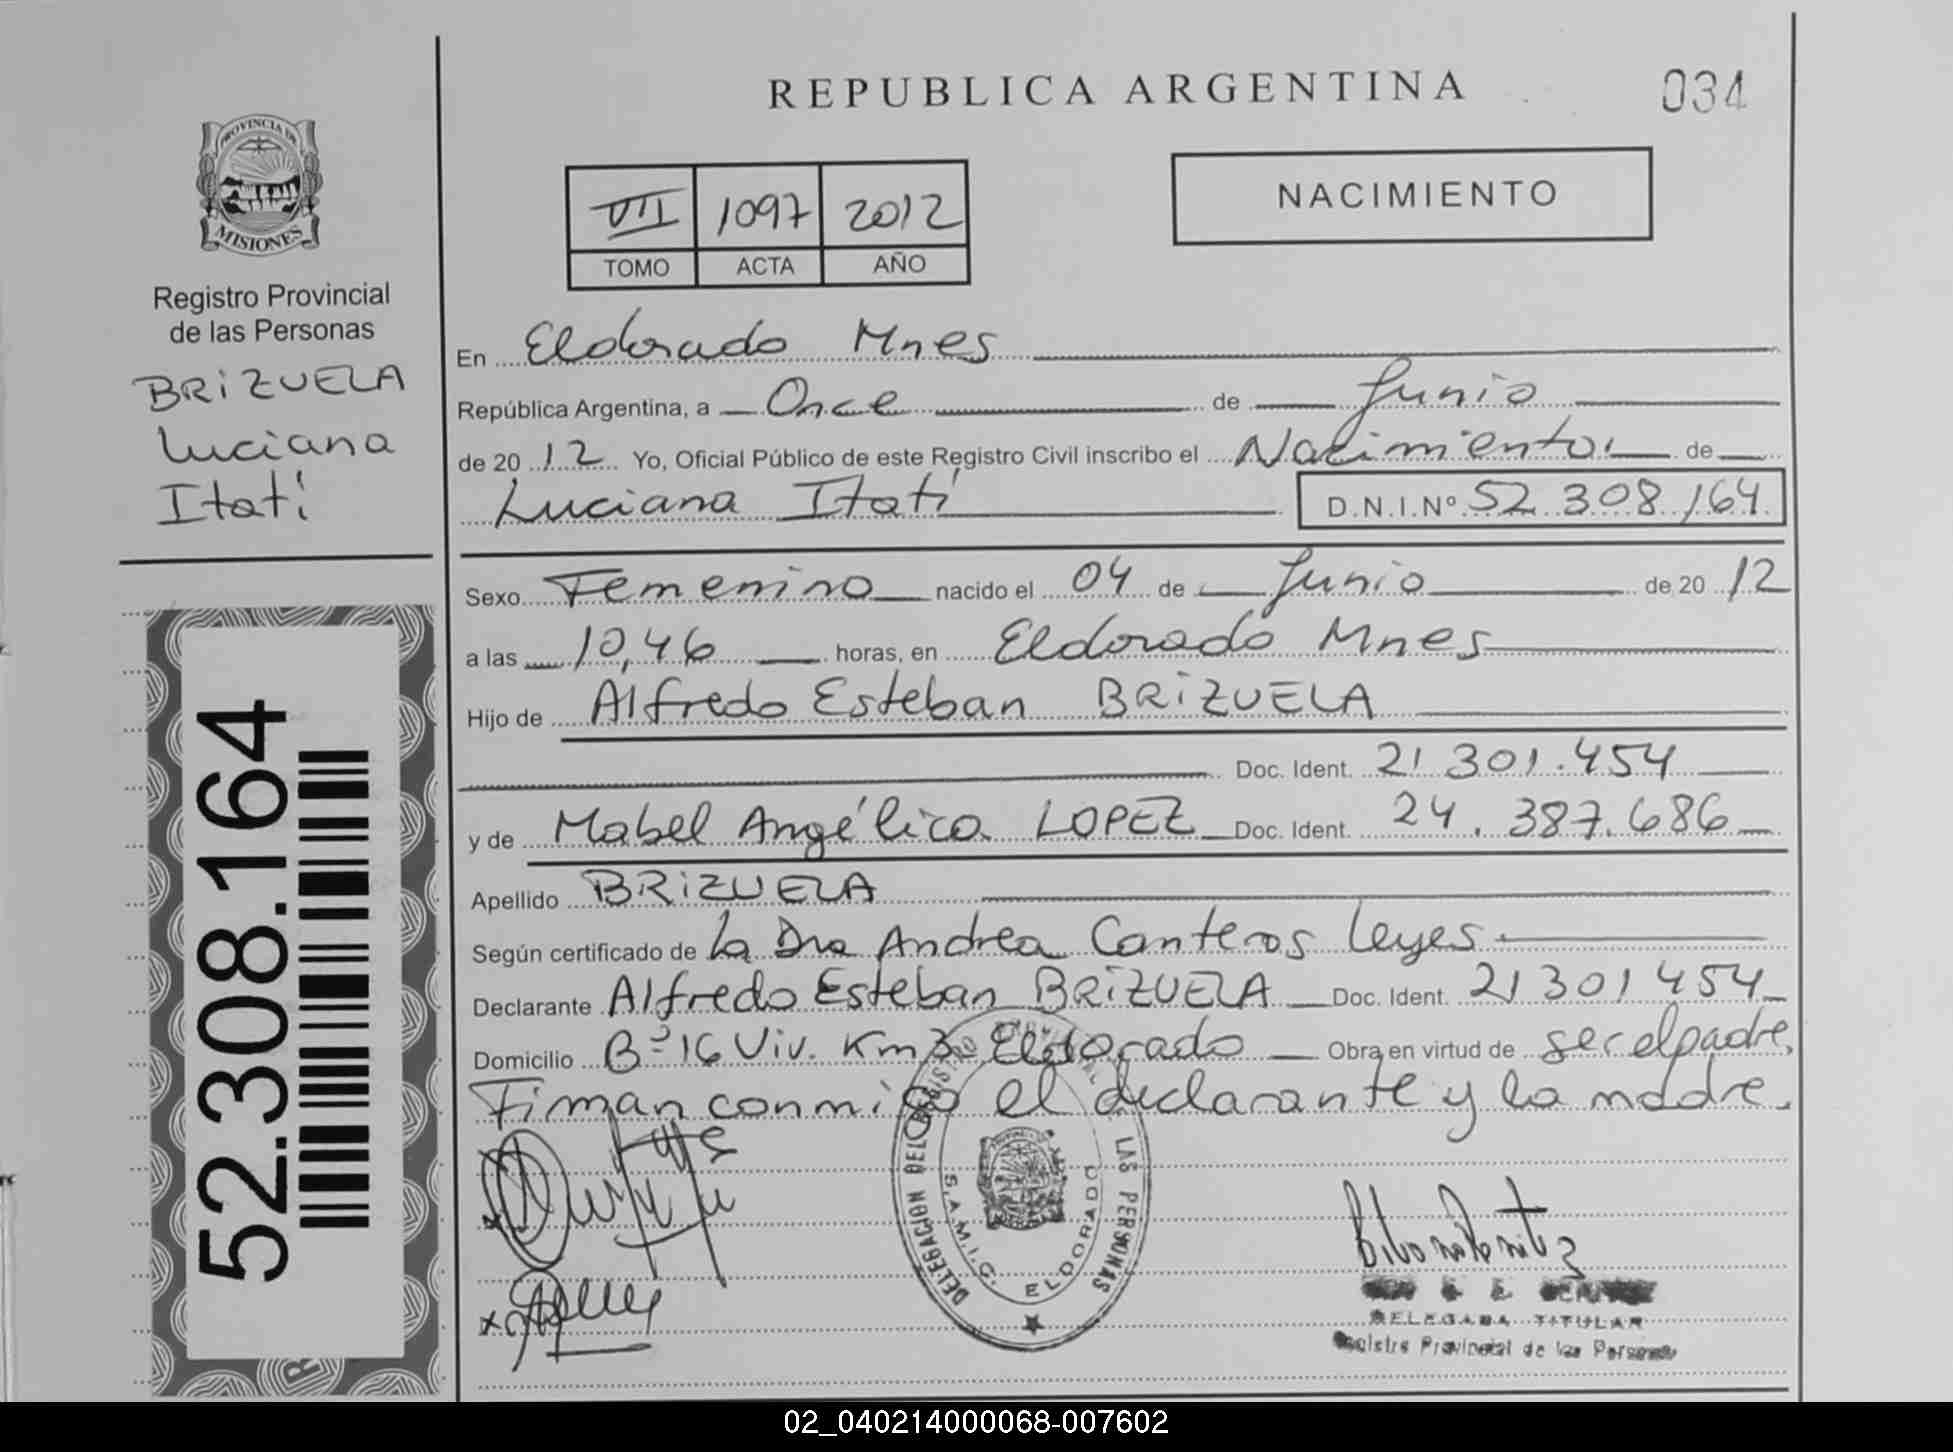 REPUBLICA ARGENTINA
034
PROVINCIA DE
MISIONES
Registro Provincial
de las Personas
BRIZUELA
Luciana
Itatí
VII 1097 2012
TOMO ACTA AÑO
NACIMIENTO
En Eldorado Mnes
República Argentina, a Once de Junio
de 2012 Yo, Oficial Público de este Registro Civil inscribo el Nacimiento de
Luciana Itatí D.N.I.Nº 52.308.164
Sexo Femenino nacido el 04 de Junio de 2012
a las 10,46 horas, en Eldorado Mnes
Hijo de Alfredo Esteban BRIZUELA
Doc. Ident. 21.301.454
y de Mabel Angélica LOPEZ Doc. Ident. 24.387.686
Apellido BRIZUELA
Según certificado de La Dra Andrea Canteros Leyes
Declarante Alfredo Esteban BRIZUELA Doc. Ident. 21301454
Domicilio Bº 16 Viv. Km 3 Eldorado Obra en virtud de ser el padre.
Firman conmigo el declarante y la madre.
DELEGACION DEL REGISTRO PROVINCIAL LAS PERSONAS
S.A.M.I.C. ELDORADO
DELEGADA TITULAR
Registro Provincial de las Personas
52.308.164
02_040214000068-007602